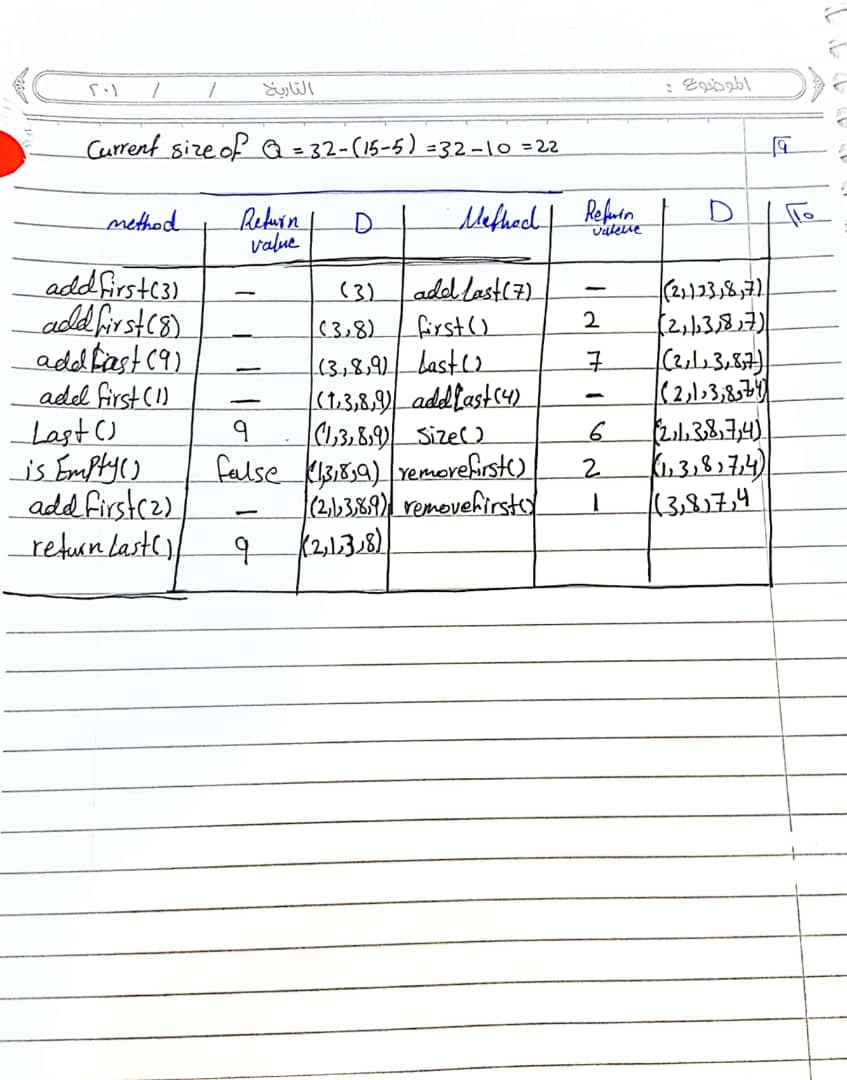 الموضوع : التاريخ / / ٢٠١
Current size of Q = 32-(15-5) = 32-10 = 22 9
method Return value D Method Return value D 10
addfirst(3) — (3) addlast(7) — (2,1,3,8,7)
addfirst(8) — (3,8) first() 2 (2,1,3,8,7)
addLast(9) — (3,8,9) Last() 7 (2,1,3,8,7)
addfirst(1) — (1,3,8,9) addlast(4) — (2,1,3,8,7,4)
Last() 9 (1,3,8,9) Size() 6 (2,1,3,8,7,4)
isEmpty() false (1,3,8,9) removefirst() 2 (1,3,8,7,4)
addfirst(2) — (2,1,3,8,9) removefirst() 1 (3,8,7,4
returnLast() 9 (2,1,3,8)